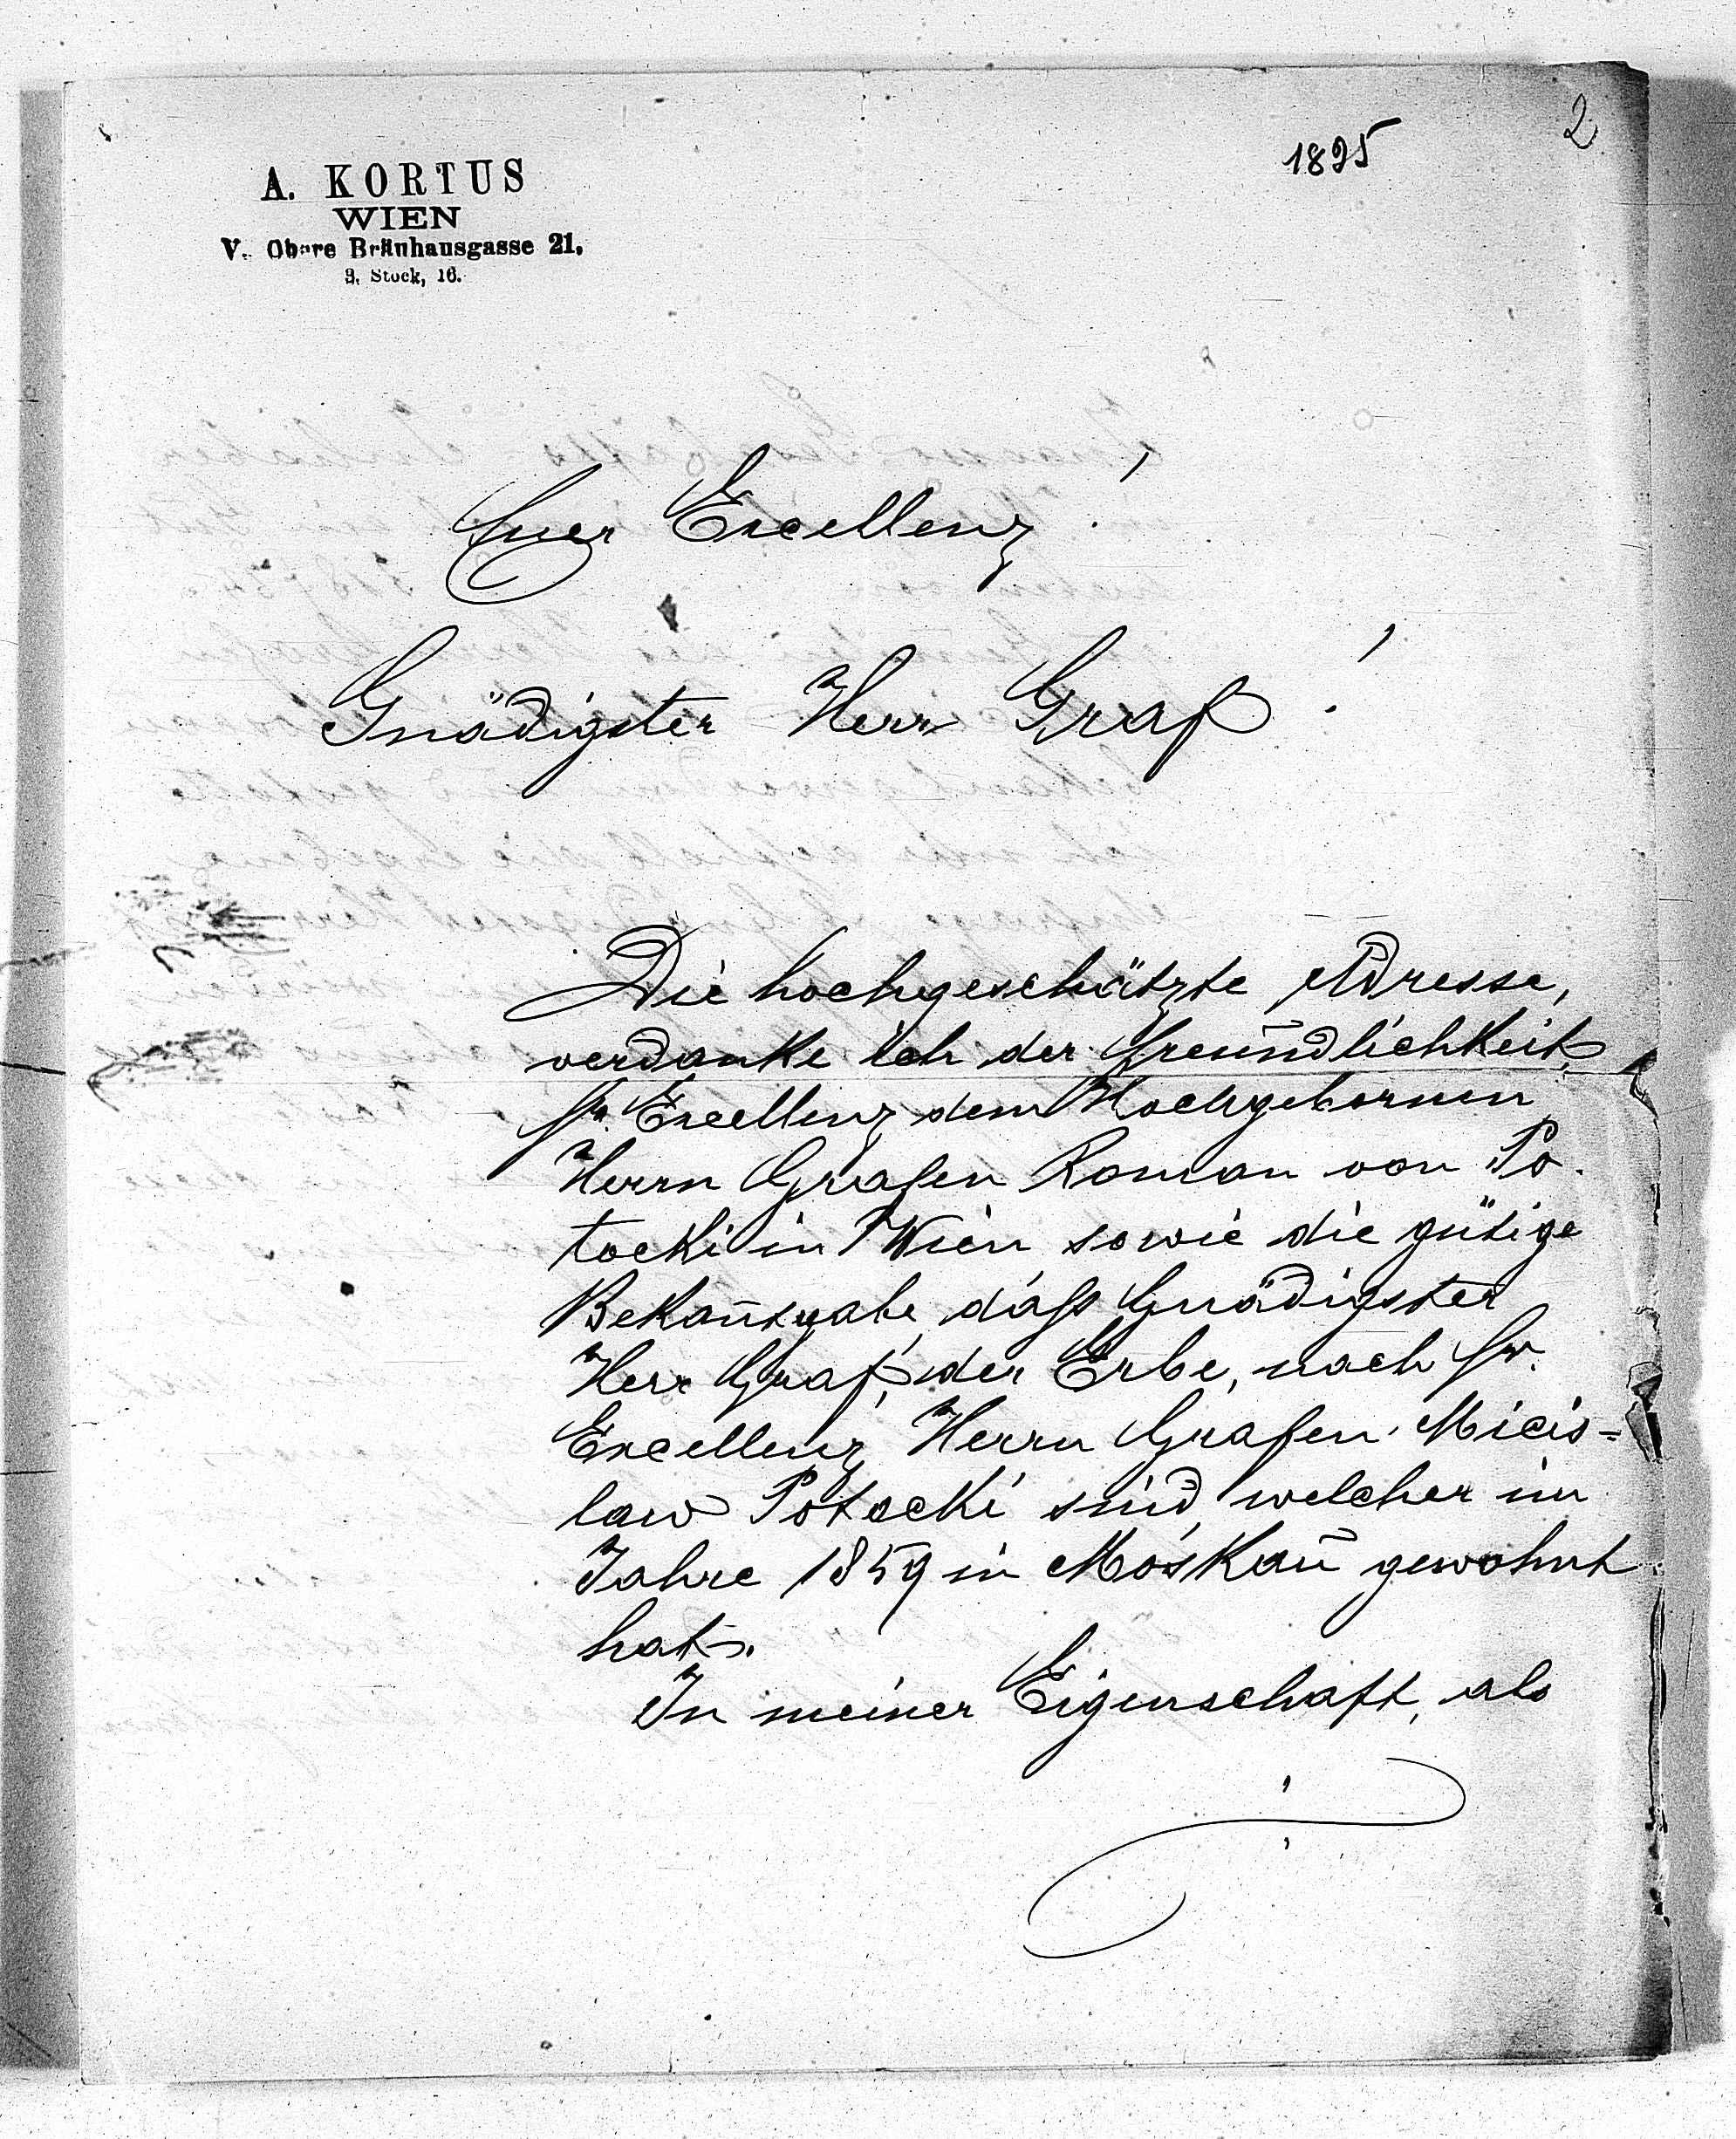 2
1895
A. KORTUS
WIEN
V. Obere Bräuhausgasse 21.
3. Stock, 16.
Euer Excellenz!
Gnädigster Herr Graf!
Die hochgeschätzte Adresse,
verdanke ich der Freundlichkeit
Sr. Excellenz dem Hochgebornen
Herrn Grafen Roman von Po-
tocki in Wien sowie die gütige
Bekan̄tgabe, daſs Gnädigster
Herr Graf, der Erbe, nach Sr.
Excellenz Herrn Grafen Micis=
law Potocki sind, welcher im
Jahre 1859 in Moskau gewohnt
hat.
In meiner Eigenschaft, als